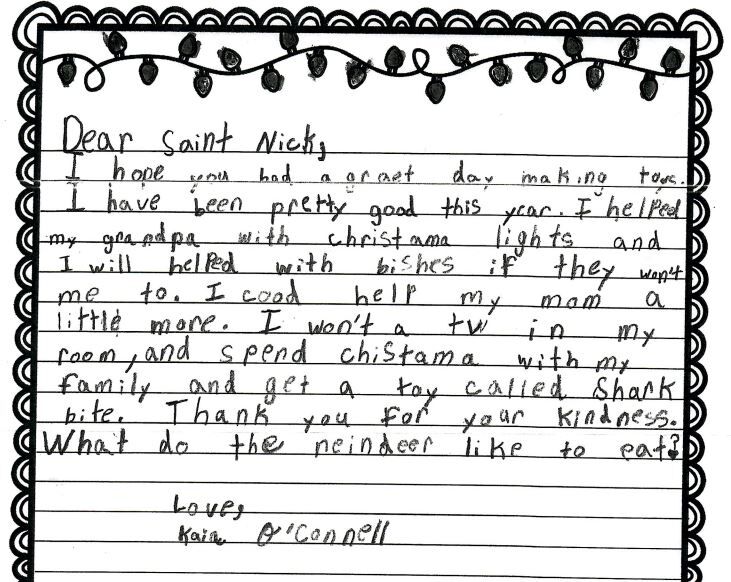 Dear Saint Nick,
I hope you had a graet day making toys.
I have been pretty good this year. I helped
my grandpa with christama lights and
I will helped with bishes if they won't
me to. I cood help my mom a
little more. I won't a tv in my
room, and spend chistama with my
family and get a toy called Shark
bite. Thank you for your kindness.
What do the reindeer like to eat?
Love,
O'Connell